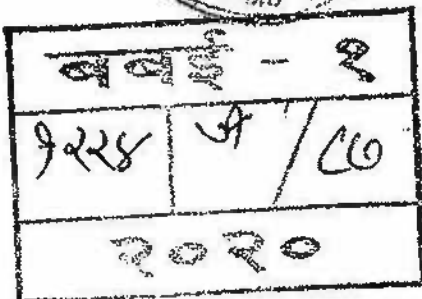 बबई - १
१२२४ / ८७
२०२०